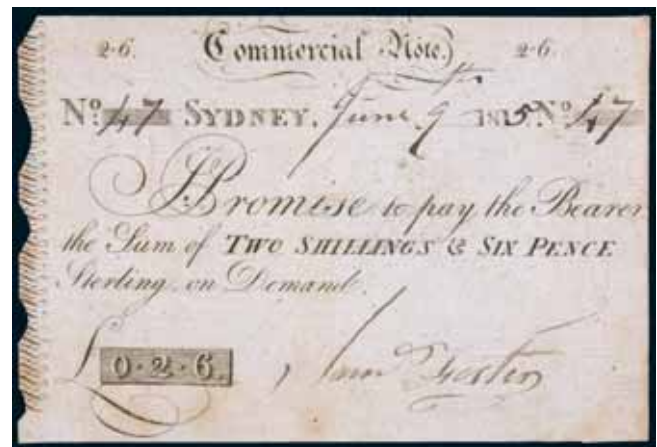 2-6. Commercial Note. 2-6.
No. 47 SYDNEY, June 9th 1815 No. 47
I Promise to pay the Bearer
the Sum of TWO SHILLINGS & SIX PENCE
Sterling on Demand.
£ 0·2·6.